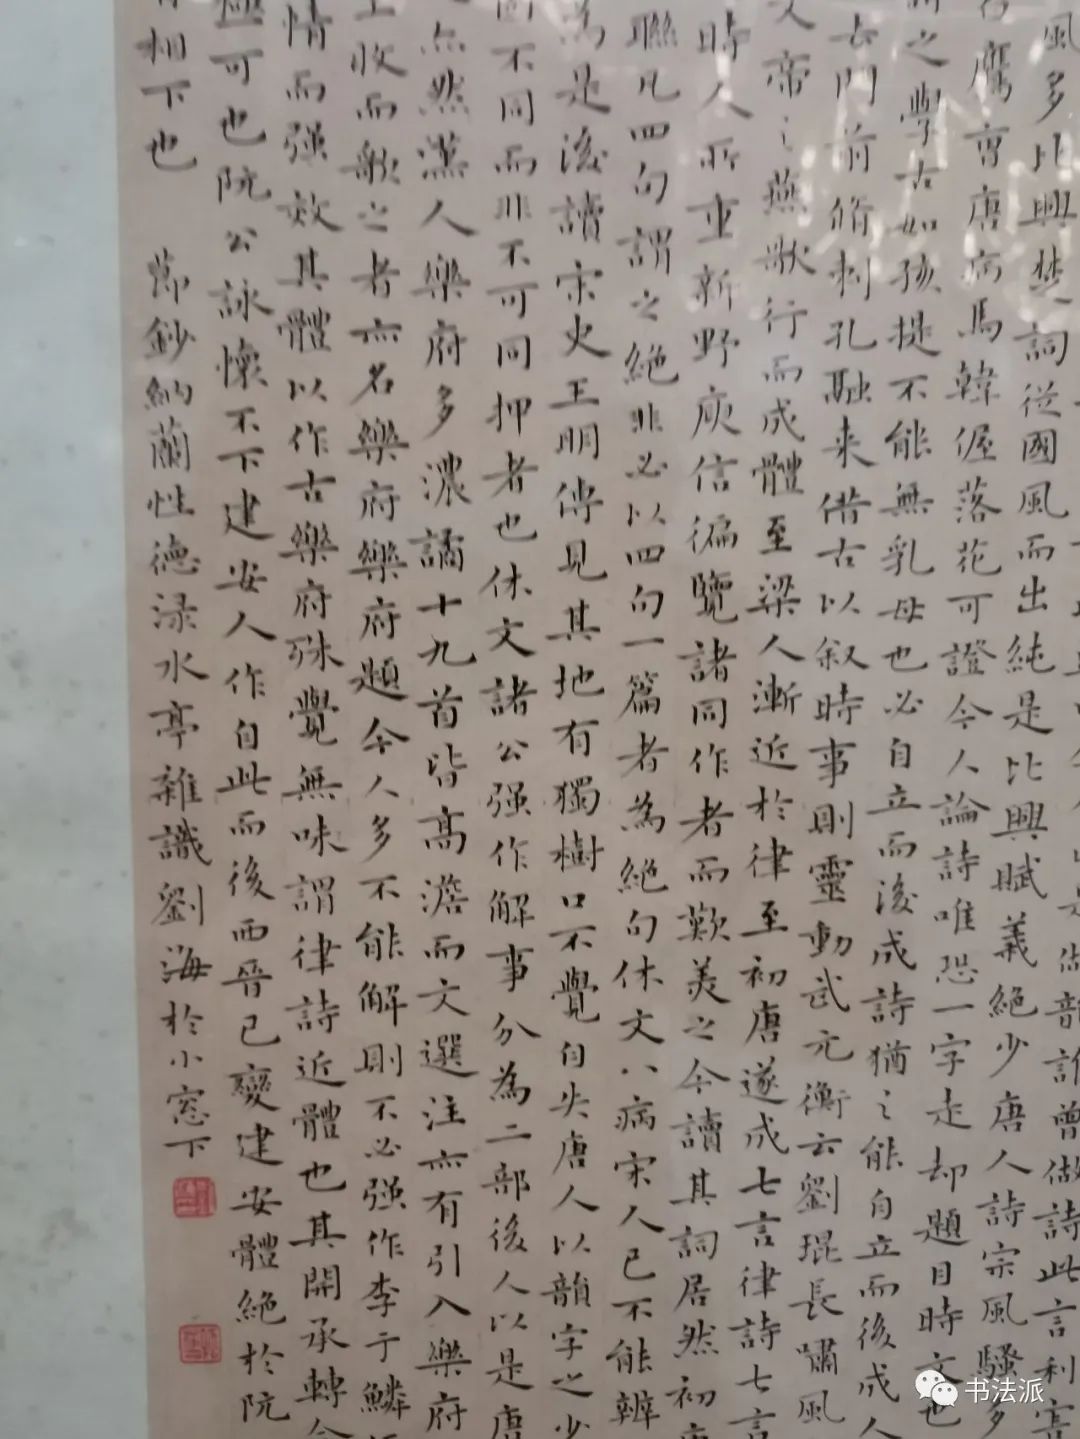 風多比興楚詞從國風而出純是比興賦義絕少唐人詩宗風騷多
唐病馬韓偓落花可證今人論詩唯恐一字走却題目時文也
之學古如孩提不能無乳母也必自立而後成詩猶之能自立而後成人
去門前脩刺孔融来借古以叙時事則靈動武元衡云劉琨長嘯風
文帝之燕歌行而成體至梁人漸近於律至初唐遂成七言律詩七言
時人所重新野庾信徧覽諸同作者而歎美之今讀其詞居然初
聯凡四句謂之絕非必以四句一篇者為絕句休文八病宋人已不能辨
為是後讀宋史王明傳見其地有獨樹口不覺自失唐人以韻字之少
不同而非不可同押者也休文諸公强作解事分為二部後人以是唐
亦然漢人樂府多濃譎十九首皆高澹而文選注亦有引入樂府
上收而歌之者亦名樂府樂府題今人多不能解則不必强作李于鱗
情而强效其體以作古樂府殊覺無味謂律詩近體也其開承轉合
極可也阮公詠懷不下建安人作自此而後西晉已變建安體絕於阮
相下也 節鈔納蘭性德渌水亭雜識劉海於小窓下
书法派